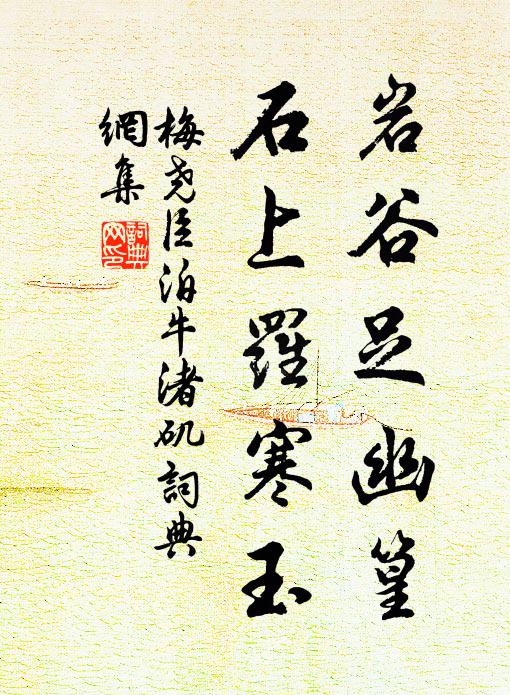 岩谷足幽篁
石上羅寒玉
梅尧臣泊牛渚矶詞典
網集
詞典
网印